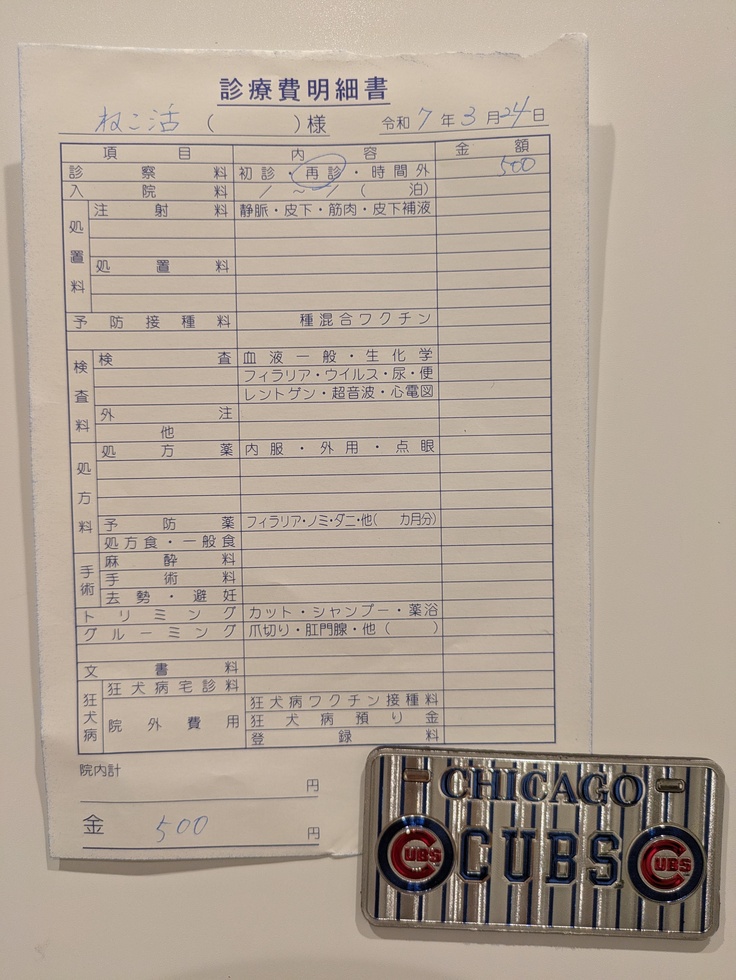 診療費明細書
ねこ活 ( )様 令和 7 年 3 月 24 日
項目 内容 金額
診察料 初診・再診・時間外 500
入院料 / ~ / ( 泊)
処置料
注射料 静脈・皮下・筋肉・皮下補液
処置料
予防接種料 種混合ワクチン
検査料
検査 血液一般・生化学
フィラリア・ウイルス・尿・便
レントゲン・超音波・心電図
外注
他
処方料
処方薬 内服・外用・点眼
予防薬 フィラリア・ノミ・ダニ・他( カ月分)
処方食・一般食
手術
麻酔料
手術料
去勢・避妊
トリミング カット・シャンプー・薬浴
グルーミング 爪切り・肛門腺・他( )
文書料
狂犬病
狂犬病宅診料
院外費用 狂犬病ワクチン接種料
狂犬病預り金
登録料
院内計 円
金 500 円
CHICAGO
CUBS
UBS
UBS